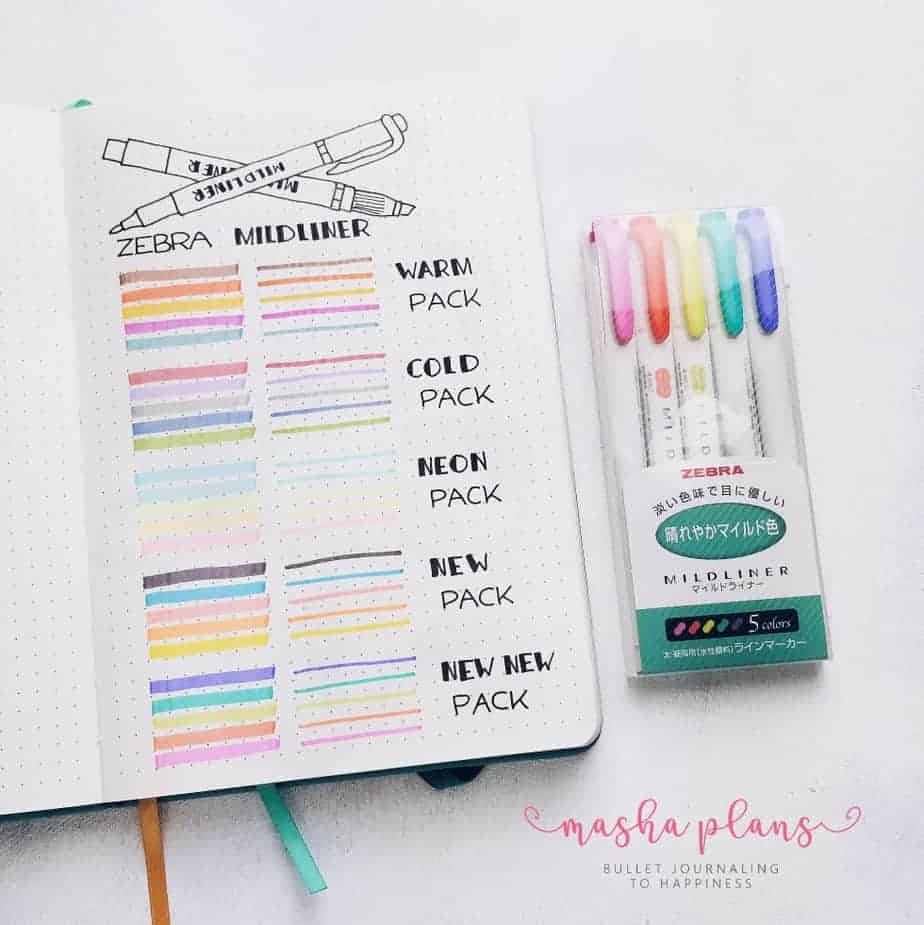 MILDLINER
ZEBRA MILDLINER
WARM
PACK
COLD
PACK
NEON
PACK
NEW
PACK
NEW NEW
PACK
MILD
MILD
ZEBRA
淡い色味で目に優しい
晴れやかマイルド色
MILDLINER
マイルドライナー
5 colors
ラインマーカー
masha plans
BULLET JOURNALING
TO HAPPINESS